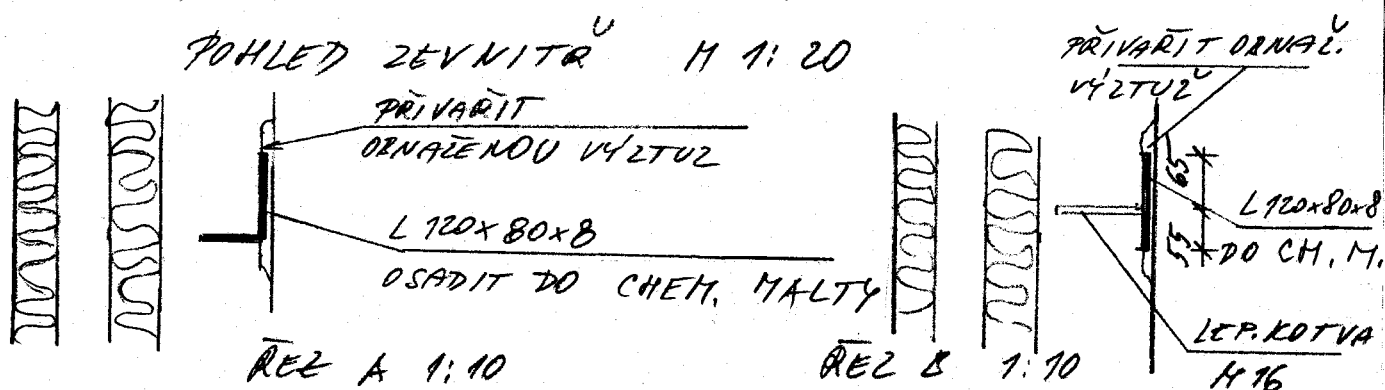 POHLED ZEVNITŘ M 1:20
PŘIVAŘIT
OBNAŽENOU VÝZTUŽ
L 120x80x8
OSADIT DO CHEM. MALTY
ŘEZ A 1:10
PŘIVAŘIT OBNAŽ.
VÝZTUŽ
65
55
L 120x80x8
DO CH. M.
LEP. KOTVA
M 16
ŘEZ B 1:10